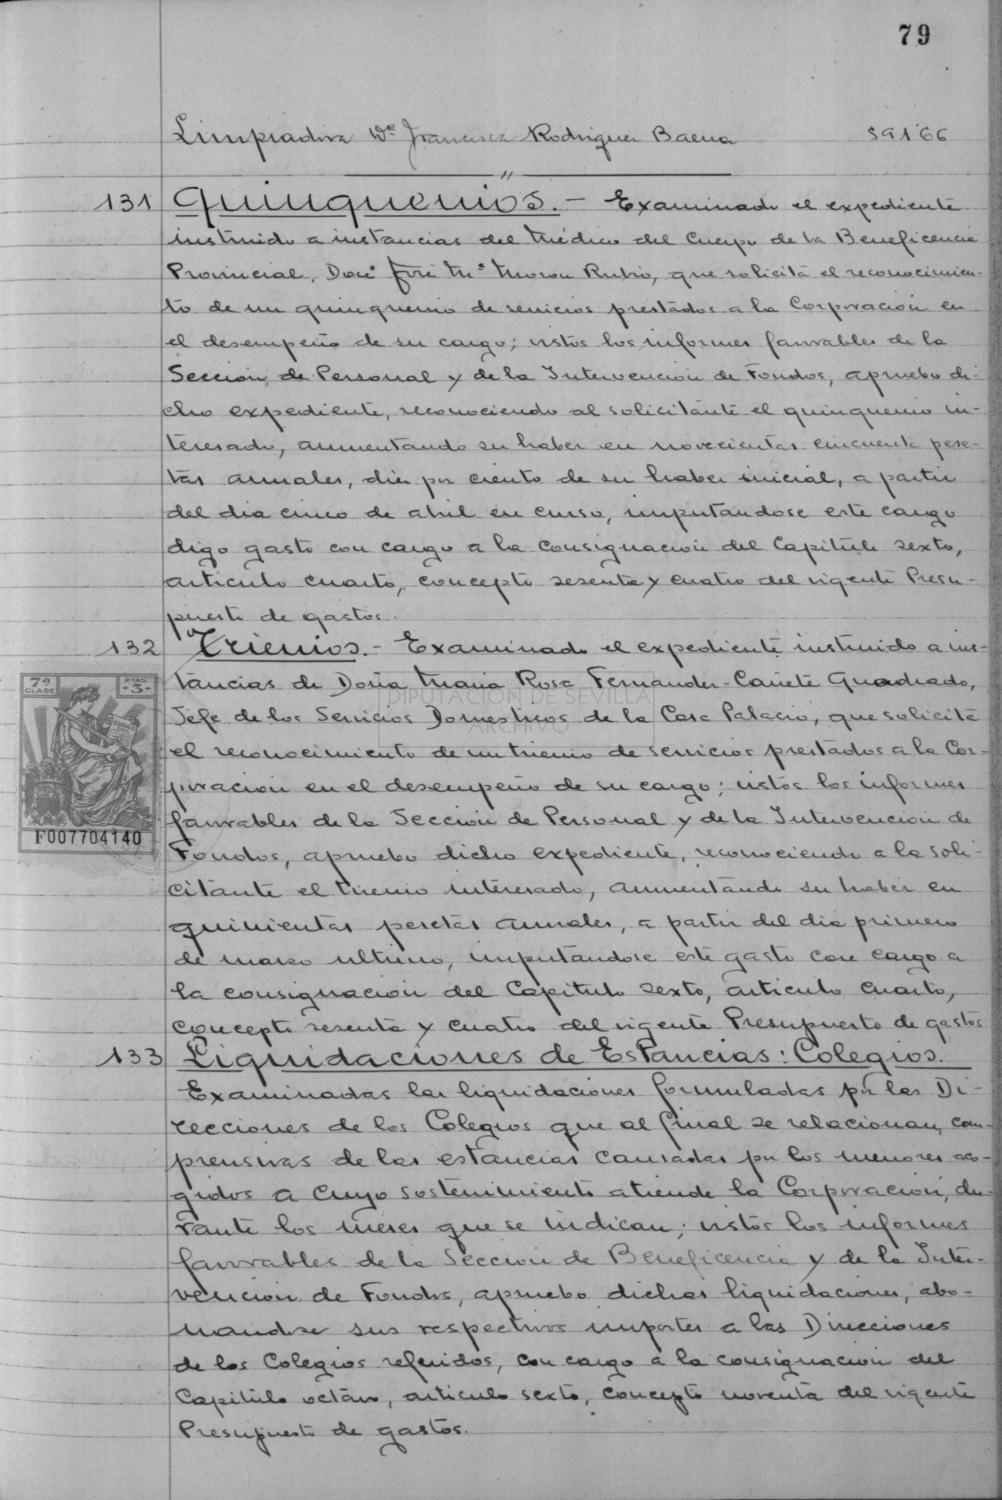 79
Limpiadora Dª Francisca Rodriguez Baena 591'66
131 Quinquenios.- Examinado el expediente
instruido a instancias del Médico del Cuerpo de la Beneficencia
Provincial, Don José Mª Moron Rubio, que solicita el reconocimien-
to de un quinquenio de servicios prestados a la Corporación en
el desempeño de su cargo; vistos los informes favorables de la
Sección de Personal y de la Intervención de Fondos, apruebo di-
cho expediente, reconociendo al solicitante el quinquenio in-
teresado, aumentando su haber en novecientas cincuenta pese-
tas anuales, diez por ciento de su haber inicial, a partir
del dia cinco de abril en curso, imputandose este cargo
digo gasto con cargo a la consignación del Capítulo sexto,
articulo cuarto, concepto sesenta y cuatro del vigente Presu-
puesto de gastos.
132 Trienios.- Examinado el expediente instruido a ins-
tancias de Doña Maria Rosa Fernandez-Cañete Quadrado,
Jefe de los Servicios Domesticos de la Casa Palacio, que solicita
el reconocimiento de un trienio de servicios prestados a la Cor-
poracion en el desempeño de su cargo; vistos los informes
favorables de la Sección de Personal y de la Intervencion de
Fondos, apruebo dicho expediente, reconociendo a la soli-
citante el trienio interesado, aumentando su haber en
quinientas pesetas anuales, a partir del dia primero
de marzo ultimo, imputandose este gasto con cargo a
la consignación del Capitulo sexto, articulo cuarto,
concepto sesenta y cuatro del vigente Presupuesto de gastos
133 Liquidaciones de Estancias: Colegios.
Examinadas las liquidaciones formuladas por las Di-
recciones de los Colegios que al final se relacionan, com-
prensivas de las estancias causadas por los menores aco-
gidos a cuyo sostenimiento atiende la Corporacion, du-
rante los meses que se indican; vistos los informes
favorables de la Sección de Beneficencia y de la Inter-
vencion de Fondos, apruebo dichas liquidaciones, abo-
nandose sus respectivos importes a las Direcciones
de los Colegios referidos, con cargo a la consignación del
Capitulo octavo, articulo sexto, concepto noventa del vigente
Presupuesto de gastos.
7ª CLASE
PTAS. -3-
F007704140
DIPUTACIÓN DE SEVILLA
ARCHIVO